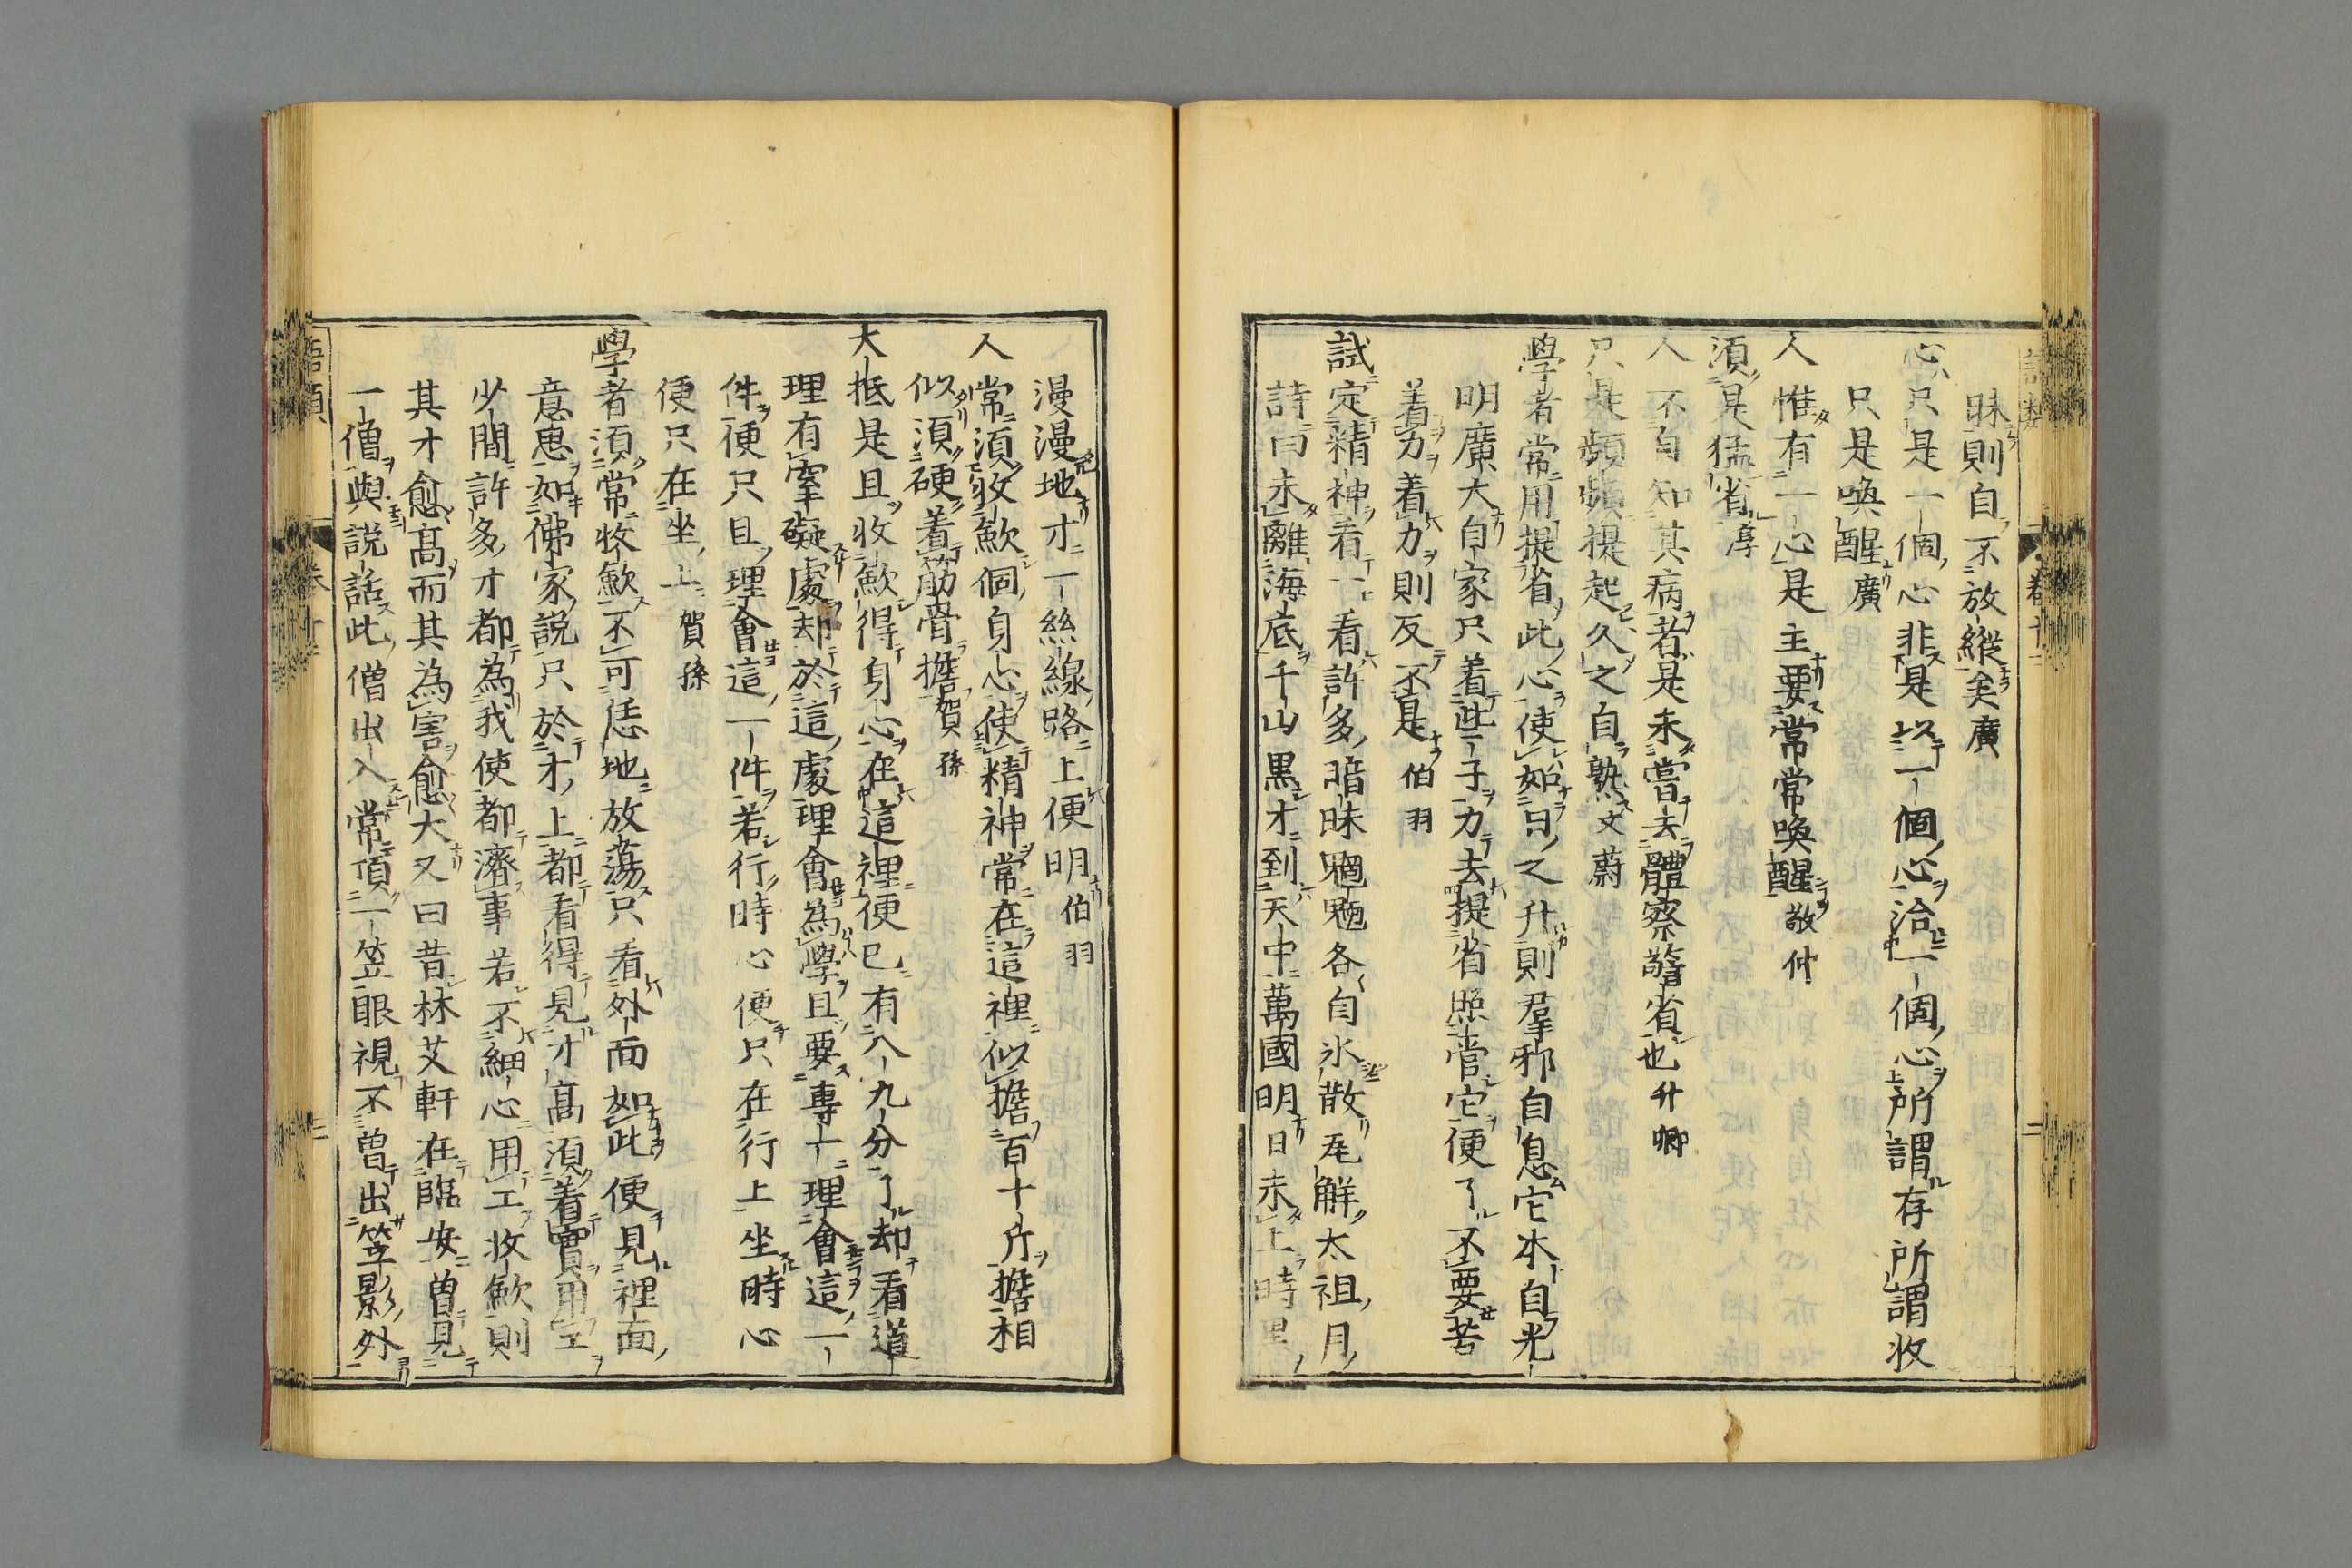 昧則自不放縱矣廣
心只是一個心非是以一個心治一個心所謂存所謂收
只是喚醒廣
人惟有一心是主要常常喚醒敬仲
須是猛省淳
人不自知其病者是未嘗去體察警省也升卿
只是頻頻提起久之自熟文蔚
學者常用提省此心使如日之升則羣邪自息它本自光
明廣大自家只着些子力去提省照管它便了不要苦
着力着力則反不是伯羽
試定精神看一看許多暗昧魍魎各自氷散瓦解太祖月
詩曰未離海底千山黒才到天中萬國明日未上時黒
漫漫地才一絲線路上便明伯羽
人常須收歛個身心使精神常在這裡似擔百十斤擔相
似須硬着筋骨擔賀孫
大抵是且收歛得身心在這裡便巳有八九分了却看道
理有窒礙處却於這處理會為學且要專一理會這一
件便只且理會這一件若行時心便只在行上坐時心
便只在坐上賀孫
學者須常收歛不可恁地放蕩只看外面如此便見裡面
意思如佛家說只於才上都看得見才高須着實用工
少間許多才都為我使都濟事若不細心用工收歛則
其才愈高而其為害愈大又曰昔林艾軒在臨安曾見
一僧與說話此僧出入常頂一笠眼視不曾出笠影外